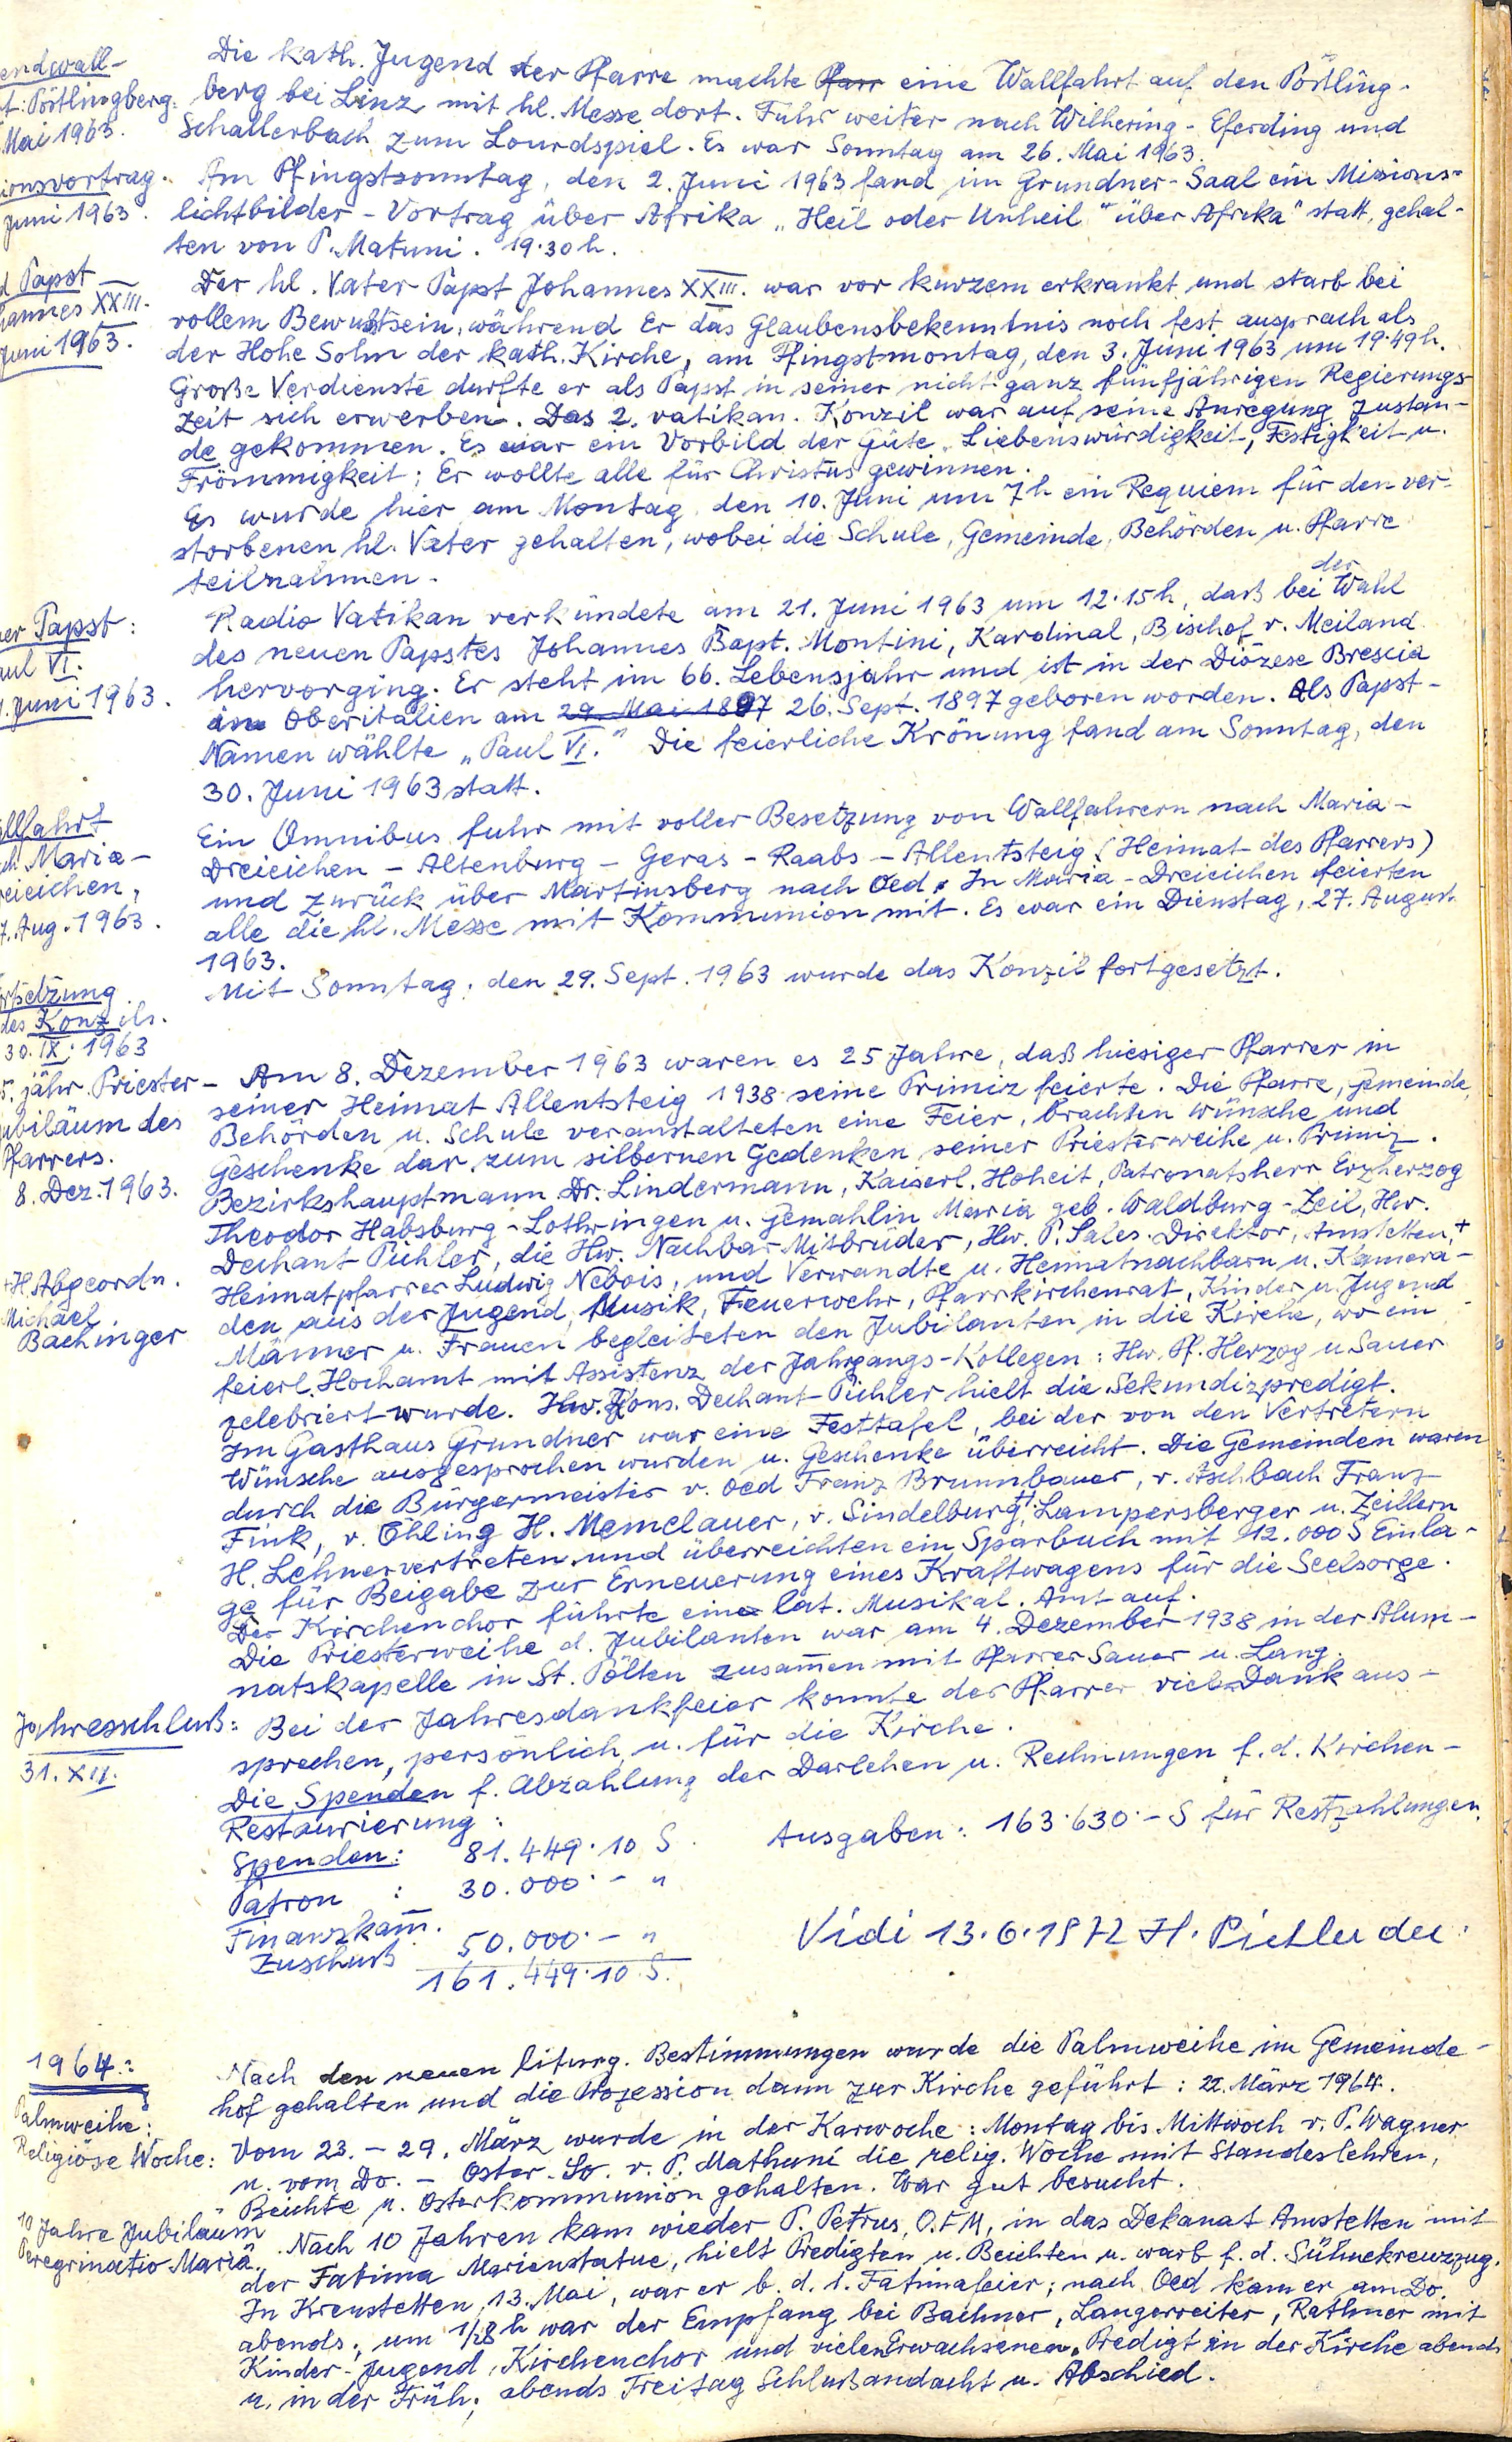 endwall-
t: Pöstlingberg.
Mai 1963.
Die kath. Jugend der Pfarre machte Pfarr eine Wallfahrt auf den Pöstling-
berg bei Linz mit hl. Messe dort. Fuhr weiter nach Wilhering - Eferding und
Schallerbach zum Lourdspiel. Es war Sonntag am 26. Mai 1963.
ionsvortrag.
Juni 1963.
Am Pfingstsonntag, den 2. Juni 1963 fand im Grundner-Saal ein Missions-
lichtbilder-Vortrag über Afrika „Heil oder Unheil" über Afrika" statt, gehal-
ten von P. Matuni. 19.30 h.
d Papst
hannes XXIII.
Juni 1963.
Der hl. Vater Papst Johannes XXIII. war vor kurzem erkrankt und starb bei
vollem Bewußtsein, während Er das Glaubensbekenntnis noch fest aussprach als
der Hohe Sohn der kath. Kirche, am Pfingstmontag, den 3. Juni 1963 um 19.49 h.
Große Verdienste durfte er als Papst in seiner nicht ganz fünfjährigen Regierungs-
zeit sich erwerben. Das 2. vatikan. Konzil war auf seine Anregung zustan-
de gekommen. Es war ein Vorbild der Güte, Liebenswürdigkeit, Festigkeit u.
Frömmigkeit; Er wollte alle für Christus gewinnen.
Es wurde hier am Montag, den 10. Juni um 7 h ein Requiem für den ver-
storbenen hl. Vater gehalten, wobei die Schule, Gemeinde, Behörden u. Pfarre
teilnahmen.
er Papst:
aul VI.
1. Juni 1963.
Radio Vatikan verkündete am 21. Juni 1963 um 12.15 h, daß bei der Wahl
des neuen Papstes Johannes Bapt. Montini, Kardinal, Bischof v. Meiland
hervorging. Er steht im 66. Lebensjahr und ist in der Diözese Brescia
in Oberitalien am 29. Mai 1897 26. Sept. 1897 geboren worden. Als Papst-
Namen wählte „Paul VI." Die feierliche Krönung fand am Sonntag, den
30. Juni 1963 statt.
allfahrt
ch Maria-
reieichen,
7. Aug. 1963.
Ein Omnibus fuhr mit voller Besetzung von Wallfahrern nach Maria-
Dreieichen - Altenburg - Geras - Raabs - Allentsteig (Heimat des Pfarrers)
und zurück über Martinsberg nach Oed. In Maria-Dreieichen feierten
alle die hl. Messe mit Kommunion mit. Es war ein Dienstag, 27. August
1963.
rtsetzung
des Konzils.
30. IX. 1963
Mit Sonntag, den 29. Sept. 1963 wurde das Konzil fortgesetzt.
5. jähr. Priester-
ubiläum des
Pfarrers.
8. Dez. 1963.
Am 8. Dezember 1963 waren es 25 Jahre, daß hiesiger Pfarrer in
seiner Heimat Allentsteig 1938 seine Primiz feierte. Die Pfarre, Gemeinde,
Behörden u. Schule veranstalteten eine Feier, brachten Wünsche und
Geschenke dar zum silbernen Gedenken seiner Priesterweihe u. Primiz.
Bezirkshauptmann Dr. Lindermann, Kaiserl. Hoheit, Patronatsherr Erzherzog
Theodor Habsburg-Lothringen u. Gemahlin Maria geb. Waldburg-Zeil, Hw.
Dechant Pichler, die Hw. Nachbar Mitbrüder, Hw. P. Sales. Direktor, Amstetten, +
+ H. Abgeordn.
Michael
Bachinger
Heimatpfarrer Ludwig Nebois, und Verwandte u. Heimatnachbarn u. Kamera-
den aus der Jugend, Musik, Feuerwehr, Pfarrkirchenrat, Kinder u. Jugend
Männer u. Frauen begleiteten den Jubilanten in die Kirche, wo ein
feierl. Hochamt mit Assistenz der Jahrgangs-Kollegen: Hw. Pf. Herzog u. Sauer
zelebriert wurde. Hw. Kons. Dechant Pichler hielt die Sekundizpredigt.
Im Gasthaus Grundner war eine Festtafel, bei der von den Vertretern
Wünsche ausgesprochen wurden u. Geschenke überreicht. Die Gemeinden waren
durch die Bürgermeister v. Oed Franz Brunnbauer, v. Aschbach Franz
Fink, v. Öhling H. Memelauer, v. Sindelburg H. Lampersberger u. Zeillern
H. Lehner vertreten und überreichten ein Sparbuch mit 12.000 S Einla-
ge für Beigabe zur Erneuerung eines Kraftwagens für die Seelsorge.
Der Kirchenchor führte eine lat. Musikal. Amt auf.
Die Priesterweihe d. Jubilanten war am 4. Dezember 1938 in der Alum-
natskapelle in St. Pölten zusammen mit Pfarrer Sauer u. Lang.
Jahresschluß:
31. XII.
Bei der Jahresdankfeier konnte der Pfarrer viel Dank aus-
sprechen, persönlich u. für die Kirche.
Die Spenden f. Abzahlung der Darlehen u. Rechnungen f. d. Kirchen-
Restaurierung:
Spenden: 81.449.10 S
Ausgaben: 163.630.- S für Restzahlungen.
Patron : 30.000.- "
Finanzkam̅.
Zuschuß 50.000.- "
161.449.10 S.
Vidi 13.6.1972 H. Pichler dec.
1964:
Palmweihe:
Nach den neuen liturg. Bestimmungen wurde die Palmweihe im Gemeinde-
hof gehalten und die Prozession dann zur Kirche geführt: 22. März 1964.
Religiöse Woche:
Vom 23. - 29. März wurde in der Karwoche: Montag bis Mittwoch v. P. Wagner
u. vom Do. - Oster-So. v. P. Mathuni die relig. Woche mit Standeslehren,
Beichte u. Osterkommunion gehalten. War gut besucht.
10 Jahre Jubiläum
Peregrinatio Mariä.
Nach 10 Jahren kam wieder P. Petrus, O.F.M, in das Dekanat Amstetten mit
der Fatima Marienstatue, hielt Predigten u. Beichten u. warb f. d. Sühnekreuzzug.
In Krenstetten, 13. Mai, war er b. d. 1. Fatimafeier; nach Oed kam er am Do.
abends; um 1/28 h war der Empfang bei Bachner, Langerreiter, Rathner mit
Kinder-Jugend, Kirchenchor und vielen Erwachsenen. Predigt in der Kirche abends
u. in der Früh; abends Freitag Schlußandacht u. Abschied.